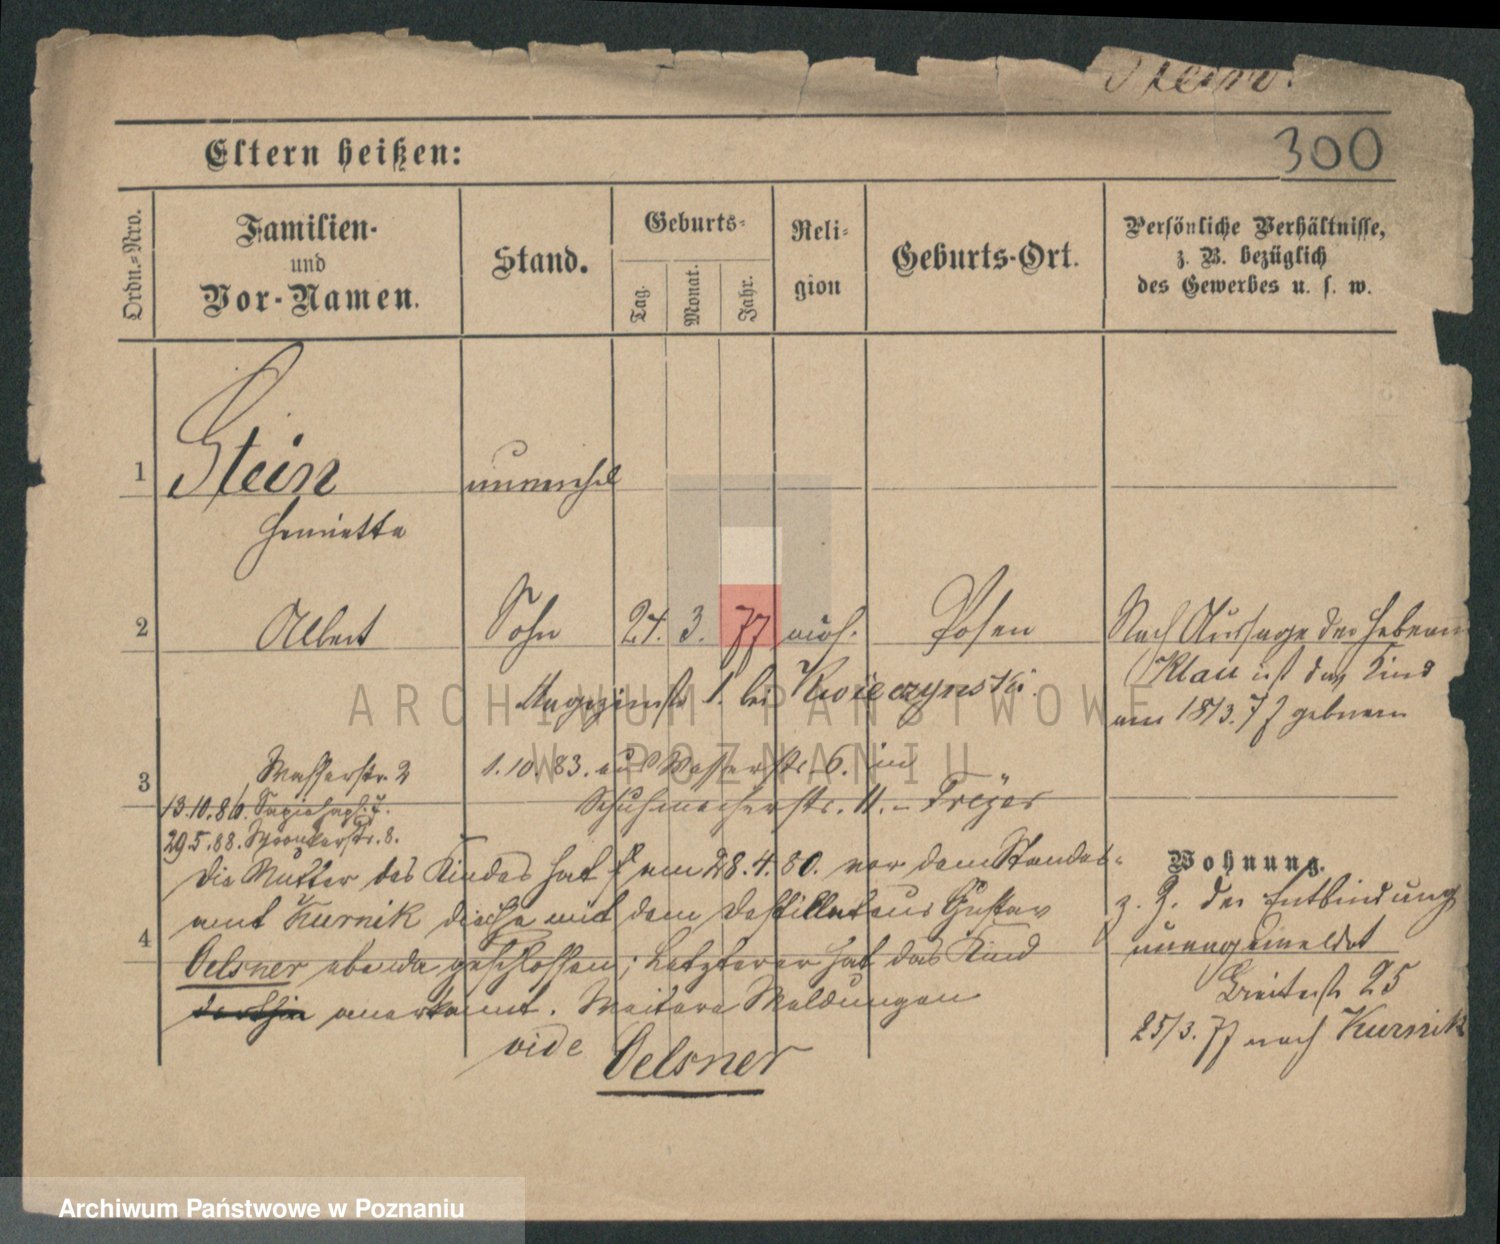 Stein.
300
Eltern heißen:
Ordn.=Nro.
Familien-
und
Vor-Namen.
Stand.
Geburts=
Tag.
Monat.
Jahr.
Reli=
gion
Geburts-Ort.
Persönliche Verhältnisse,
z. B. bezüglich
des Gewerbes u. s. w.
1 Stein unverehel
Henriette
2 Albert Sohn 24. 3. 77 mos. Posen Nach Aussage der Hebeam
Klau ist das Kind
am 18/3. 77 geboren
Magazinstr 1. bei Kwieczynski.
3 Wasserstr. 2 1. 10. 83. aus Wasserstr. 6. in
13.10.86. Sapiehapl. 7. Schuhmacherstr. 11. –
29.5.88. 8.
Die Mutter des Kindes hat am 28.4.80. vor dem Standes=
amt Kurnik die Ehe mit dem Destillateur Gustav
4 Oelsner ebenda geschlossen; Letzterer hat das Kind
anerkannt. Weitere Meldungen
vide Oelsner
Wohnung.
z. Z. der Entbindung
unangemeldet
Breitestr 25
25/3. 77 nach Kurnik
ARCHIWUM PAŃSTWOWE
W POZNANIU
Archiwum Państwowe w Poznaniu